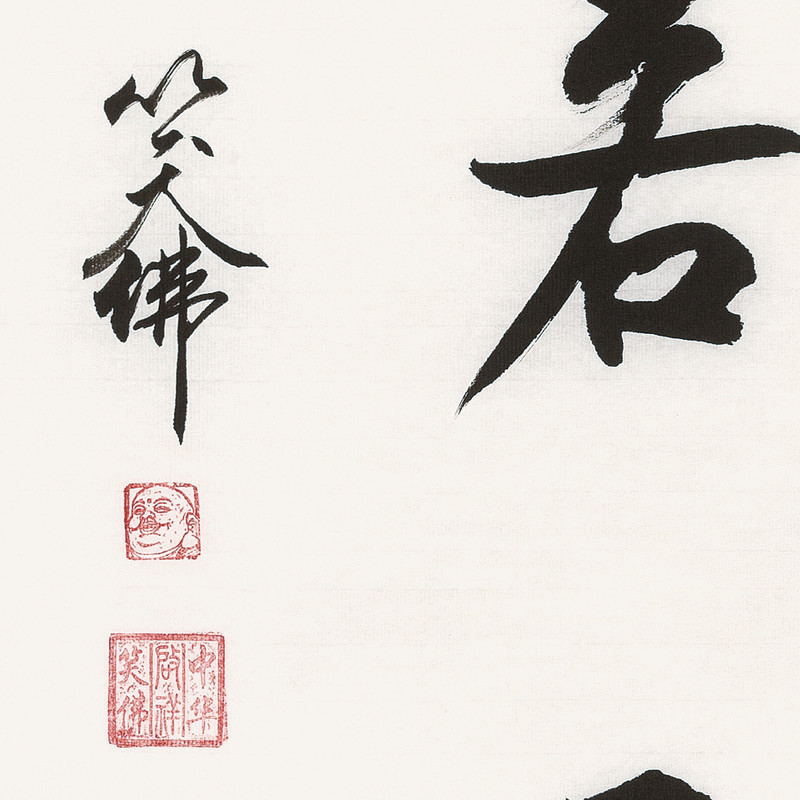 若
笑佛
中华
啟祥
笑佛